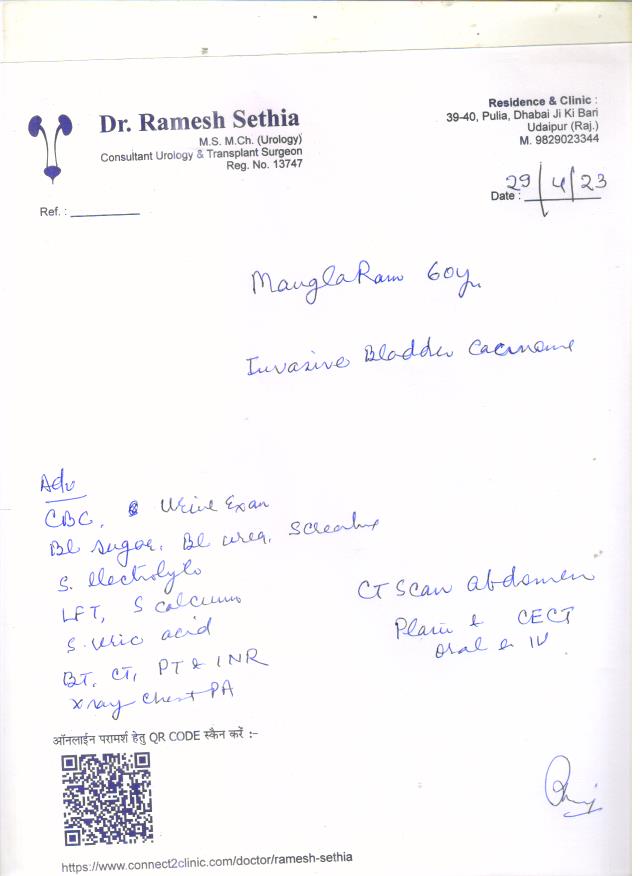 Dr. Ramesh Sethia
M.S. M.Ch. (Urology)
Consultant Urology & Transplant Surgeon
Reg. No. 13747
Residence & Clinic :
39-40, Pulia, Dhabai Ji Ki Bari
Udaipur (Raj.)
M. 9829023344
Ref. :
Date : 29/4/23
Mangla Ram 60y
Invasive Bladder
Adv
CBC, Urine Exam
Bl sugar, Bl urea,
S. electrolyte
LFT, S calcium
S. Uric acid
BT, CT, PT & INR
Xray Chest PA
CT Scan abdomen
Plain & CECT
Oral & IV
ऑनलाईन परामर्श हेतु QR CODE स्कैन करें :-
https://www.connect2clinic.com/doctor/ramesh-sethia